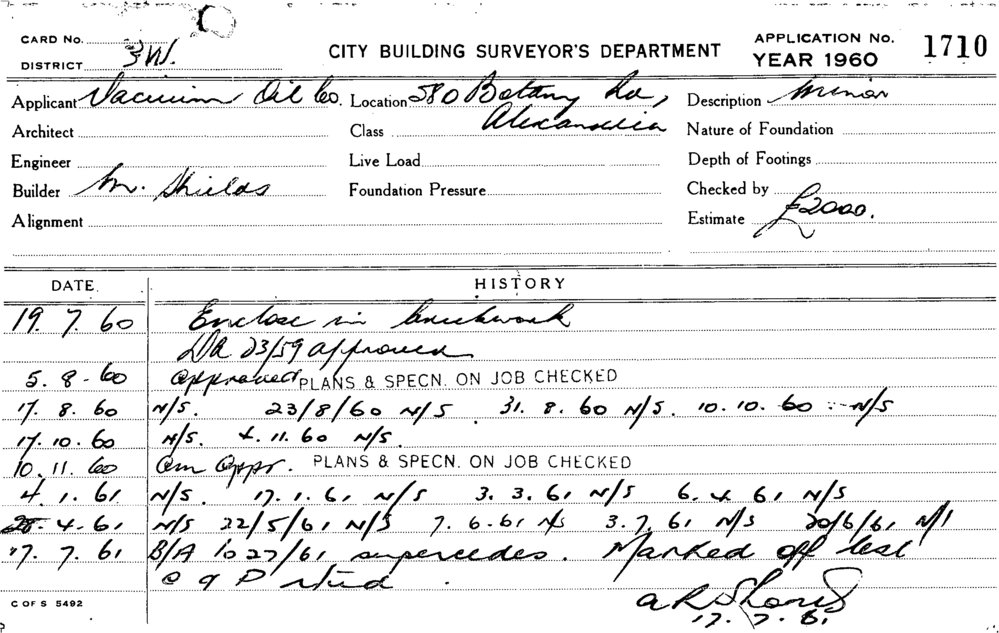 CARD No. CITY BUILDING SURVEYOR'S DEPARTMENT APPLICATION No. 1710
DISTRICT 3W. YEAR 1960
Applicant Vacuum Oil Co. Location 580 Botany Rd, Description Minor
Architect Class Alexandria Nature of Foundation
Engineer Live Load Depth of Footings
Builder M. Shields Foundation Pressure Checked by
Alignment Estimate £2000.
DATE HISTORY
19. 7. 60 Enclose in brickwork
DA 23/59 approved
5. 8. 60 approved PLANS & SPECN. ON JOB CHECKED
17. 8. 60 N/S. 23/8/60 N/S 31. 8. 60 N/S. 10. 10. 60 N/S
17. 10. 60 N/S. 4. 11. 60 N/S.
10. 11. 60 Am Appr. PLANS & SPECN. ON JOB CHECKED
4. 1. 61 N/S. 17. 1. 61 N/S 3. 3. 61 N/S 6. 4. 61 N/S
28. 4. 61 N/S 22/5/61 N/S 7. 6. 61 N/S 3. 7. 61 N/S 20/6/61 N/S
17. 7. 61 B/A 1027/61 supercedes. Marked off test
C OF S 5492
17. 7. 61